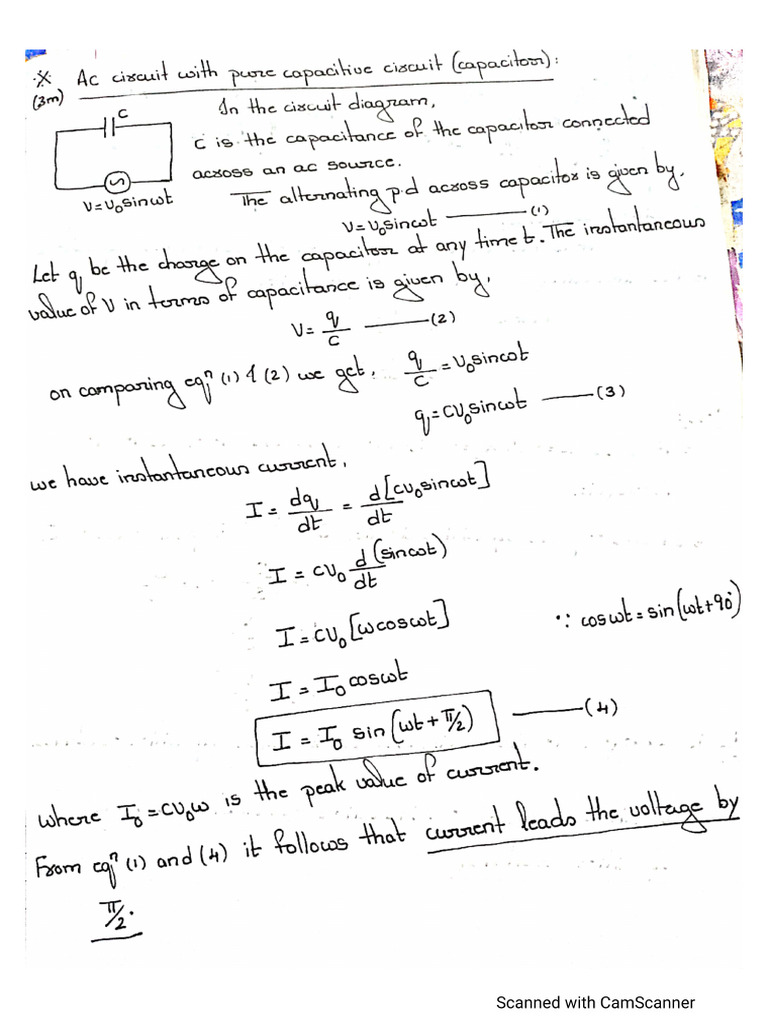 ※ Ac circuit with pure capacitive circuit (capacitor):
(3m)
C
V=V₀sinωt
In the circuit diagram,
C is the capacitance of the capacitor connected
across an ac source.
The alternating p.d across capacitor is given by,
V=V₀sinωt ——— (1)
Let q be the charge on the capacitor at any time t. The instantaneous
value of V in terms of capacitance is given by,
V= q/C ——— (2)
on comparing eqⁿ (1) & (2) we get, q/C = V₀sinωt
q=CV₀sinωt ——— (3)
we have instantaneous current,
I = dq/dt = d[CV₀sinωt]/dt
I = CV₀ d(sinωt)/dt
I=CV₀[ωcosωt] ∵ cosωt=sin(ωt+90°)
I = I₀cosωt
I = I₀ sin(ωt+π/2) ——— (4)
where I₀=CV₀ω is the peak value of current.
From eqⁿ (1) and (4) it follows that current leads the voltage by
π/2.
Scanned with CamScanner